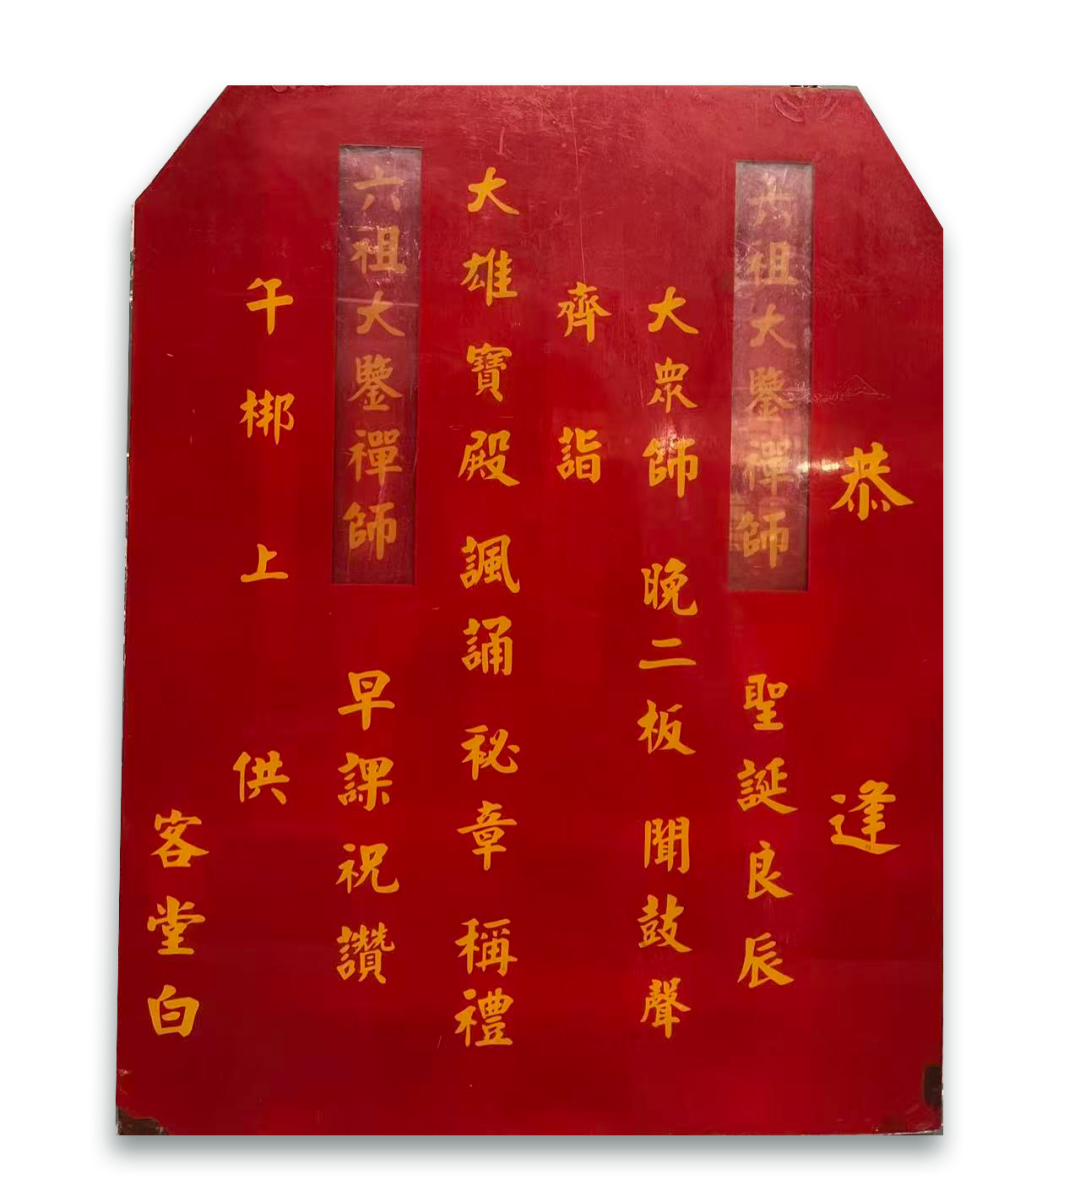 恭逢
六祖大鑒禪師聖誕良辰
大眾師晚二板聞鼓聲
齊詣
大雄寶殿諷誦秘章稱禮
六祖大鑒禪師早課祝讚
午梆上供
客堂白